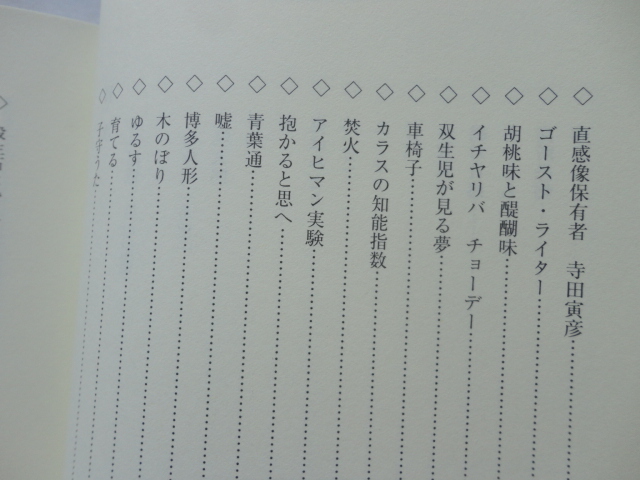 ◇ 直感像保有者 寺田寅彦
◇ ゴースト・ライター
◇ 胡桃味と醍醐味
◇ イチャリバ チョーデー
◇ 双生児が見る夢
◇ 車椅子
◇ カラスの知能指数
◇ 焚火
◇ アイヒマン実験
◇ 抱かると思へ
◇ 青葉通
◇ 嘘
◇ 博多人形
◇ 木のぼり
◇ ゆるす
◇ 育てる
◇ 子守うた